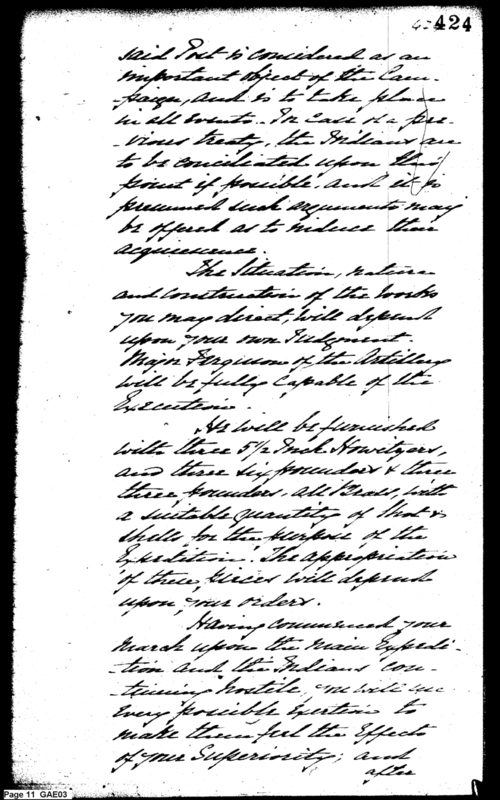 424
said Post is considered as an
important object of the Cam-
-paign, and is to take place
in all events. In case of a pre-
-vious treaty, the Indians are
to be conciliated upon this
point if possible, and it is
presumed such arguments may
be offered as to induce their
acquiescence.
The Situation, nature
and construction of the works
you may direct, will depend
upon your own Judgment.
Major Ferguson of the Artillery
will be fully capable of the
Execution.
He will be furnished
with three 5 1/2 Inch Howitzers,
and three six pounders & three
three pounders, all Brass, with
a suitable quantity of shot &
shells, for the purpose of the
Expedition. The appropriation
of these pieces will depend
upon your orders.
Having commenced your
march upon the main Expedi-
-tion and the Indians con-
-tinuing hostile, you will use
every possible exertion to
make them feel the Effects
of your Superiority; and
after
Page 11 GAE03